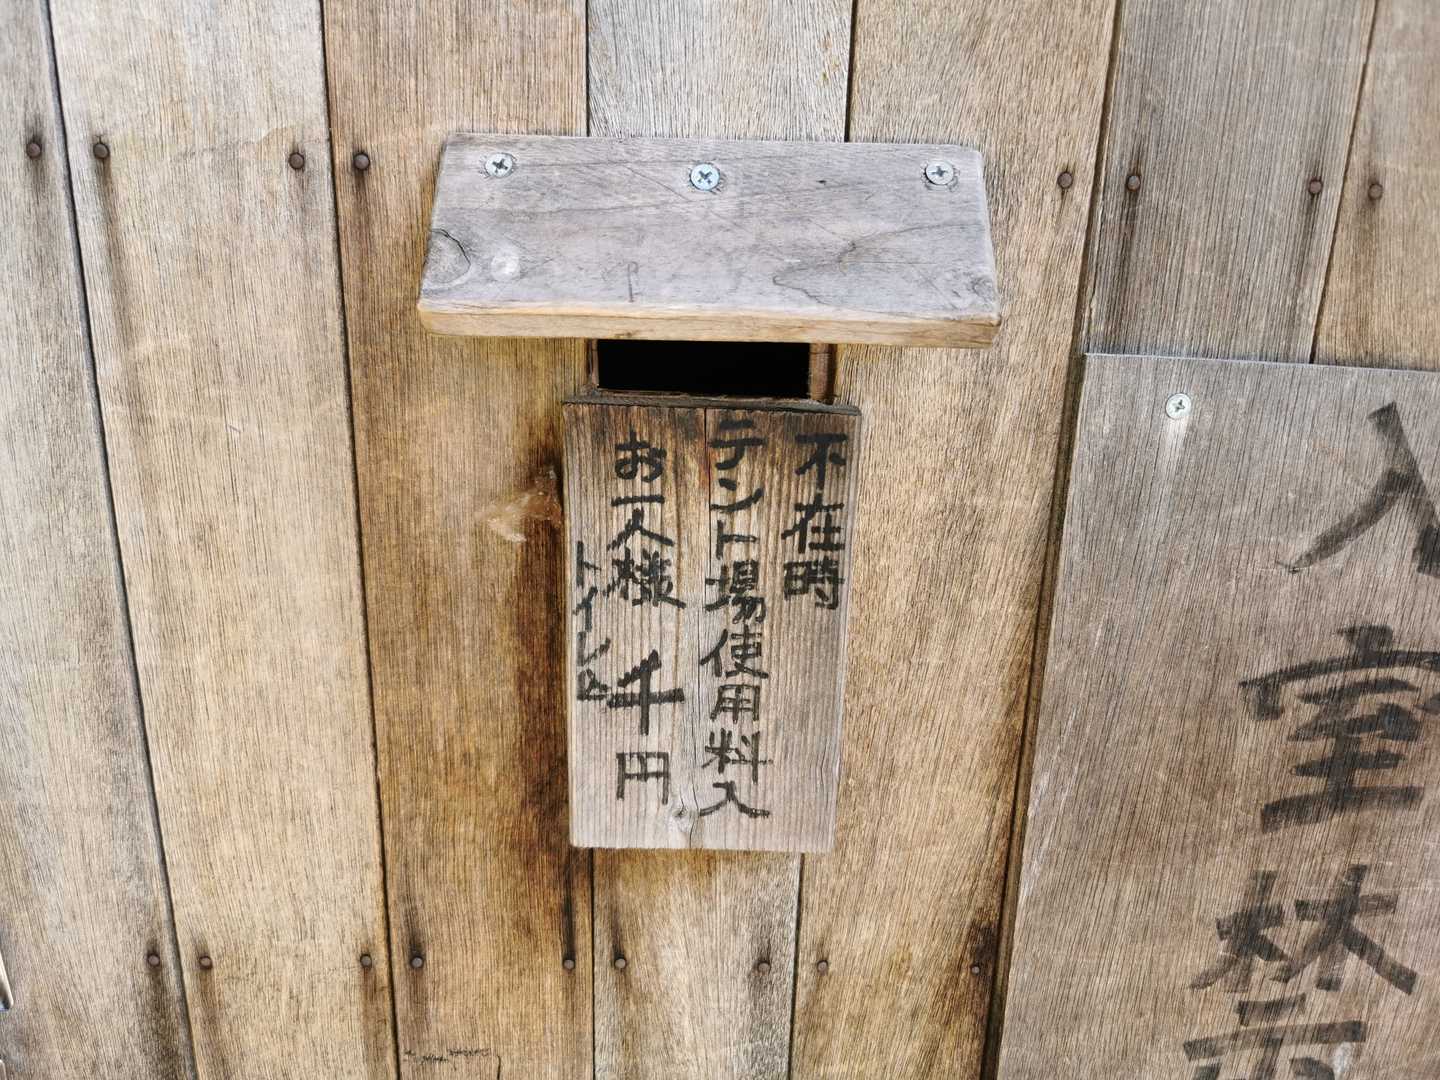 入室禁
不在時
テント場使用料入
お一人様 千円
トイレ込